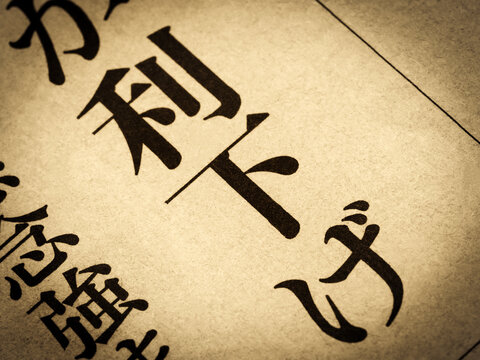 利下げ
強